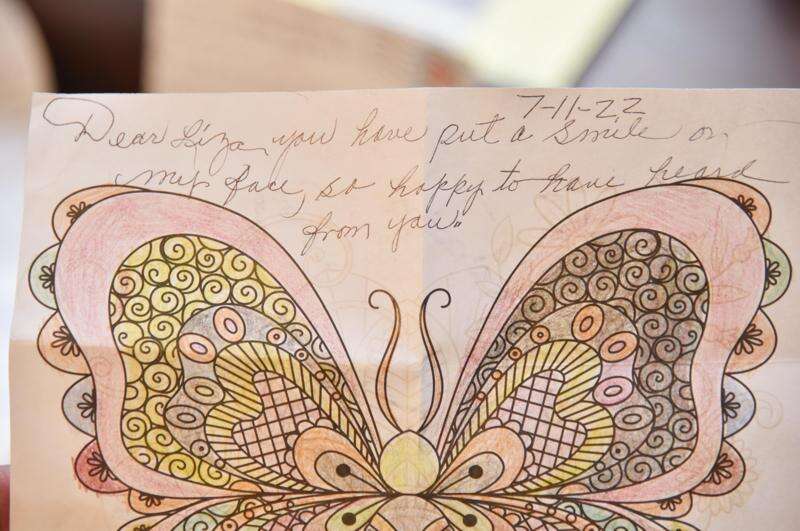 7-11-22
Dear Liza, you have put a smile on
my face, so happy to have heard
from you!!